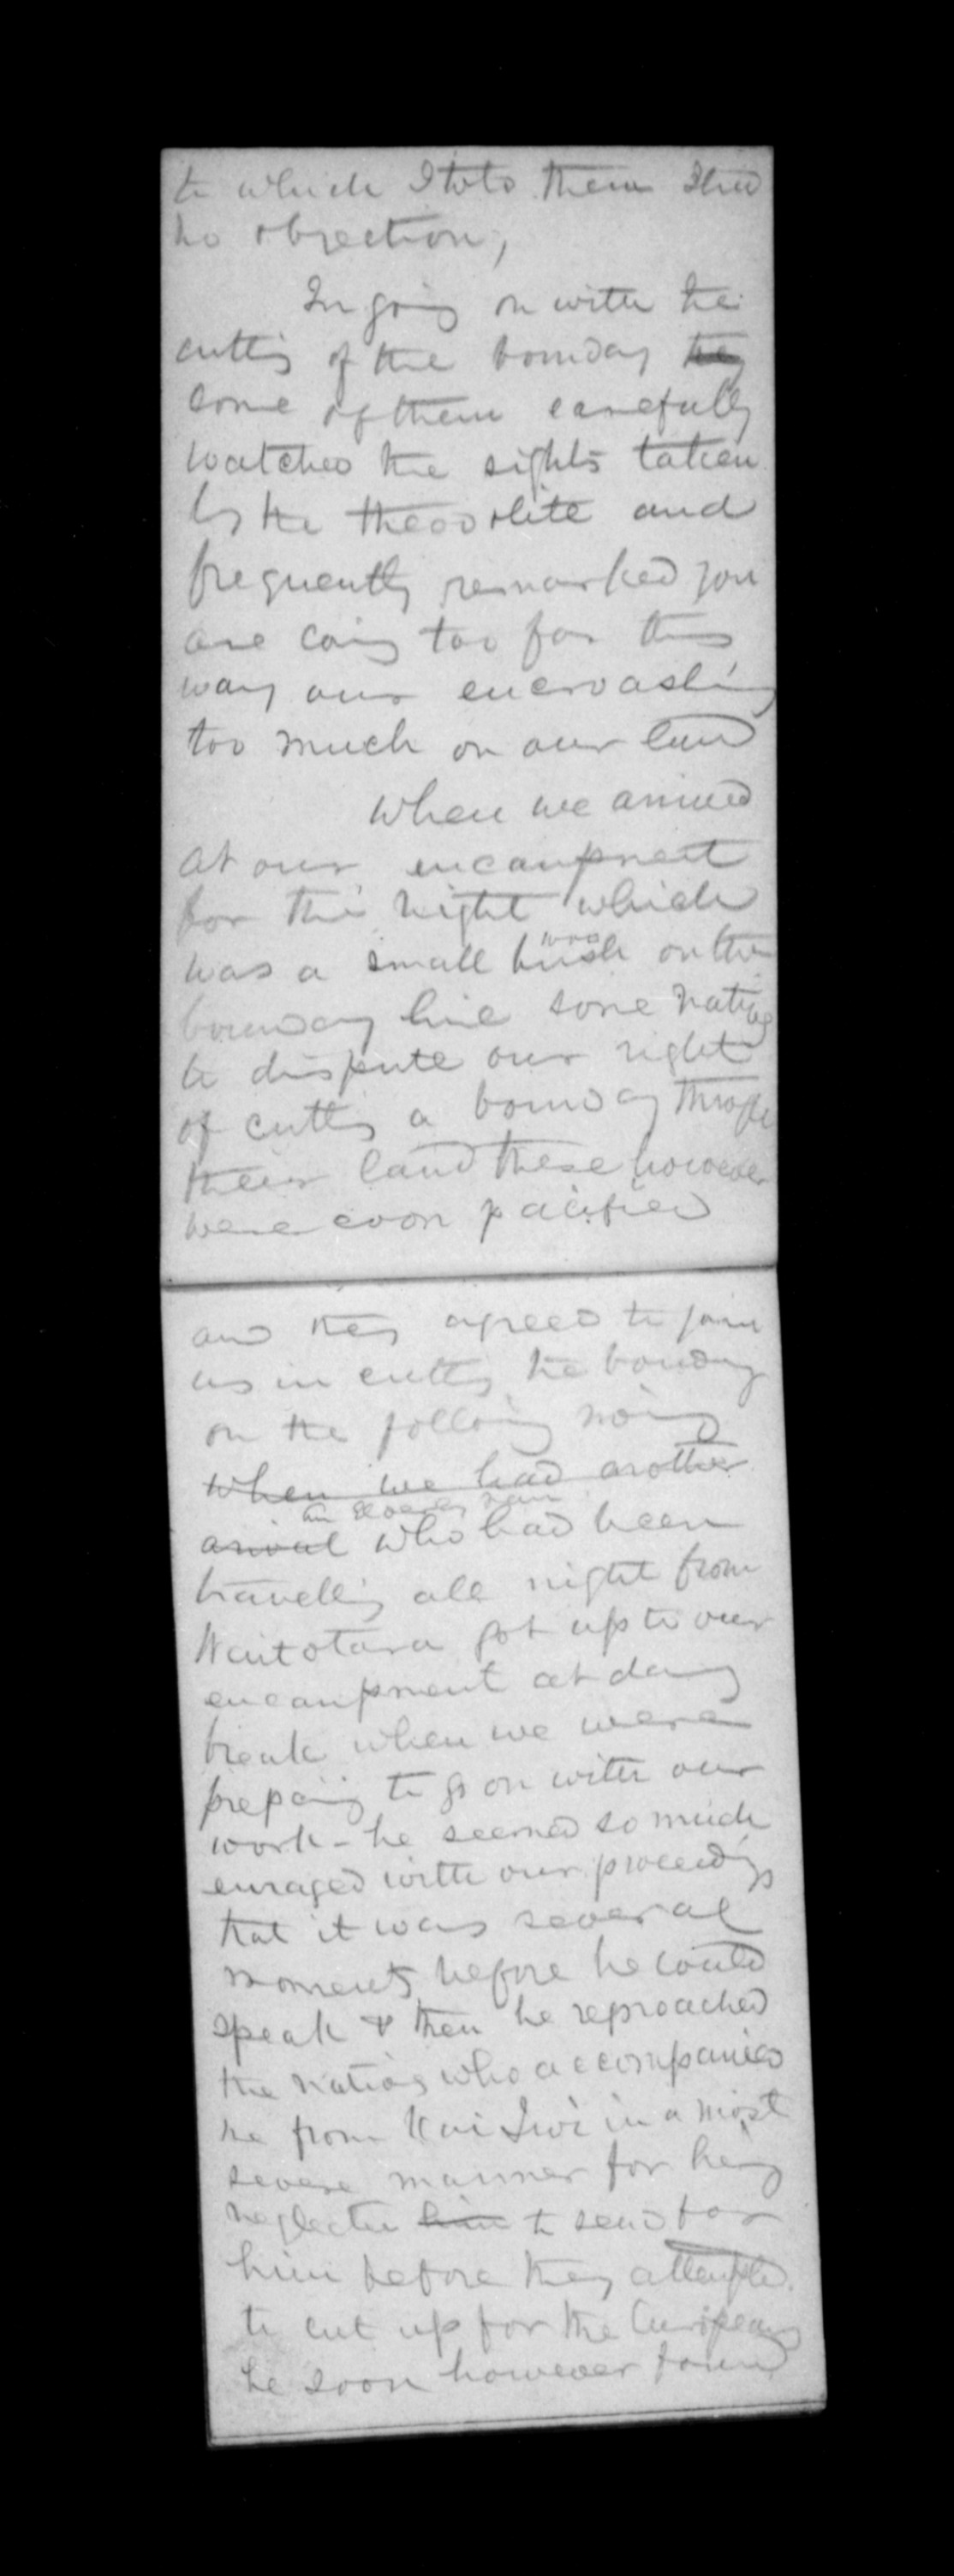 to which I told them I had
no objection,
In going on with the
cutting of the bounday they
some of them carefully
watched the sights taken
by the theodolite and
frequently remarked you
are coing too far this
way our encroashing
too much on our land
When we arrived
at our encampment
for the night which
was a small bush wood on the
bounday line some natives
to dispute our right
of cutting a bounday through
their land these however
were soon pacified
and they agreed to join
us in cutting the bounday
on the following moing
when we had another
arival An Elderly man who had been
travelling all night from
Waitotara got up to our
encampment at day
break when we were
prepaing to go on with our
work - he seemed so much
enraged with our proceedings
that it was several
moments before he could
speak & then he reproached
the natives who accompanied
me from Kai Iwi in a most
severe manner for being
neglected him to send for
him before they attempted
to cut up for the Europeans
he soon however found